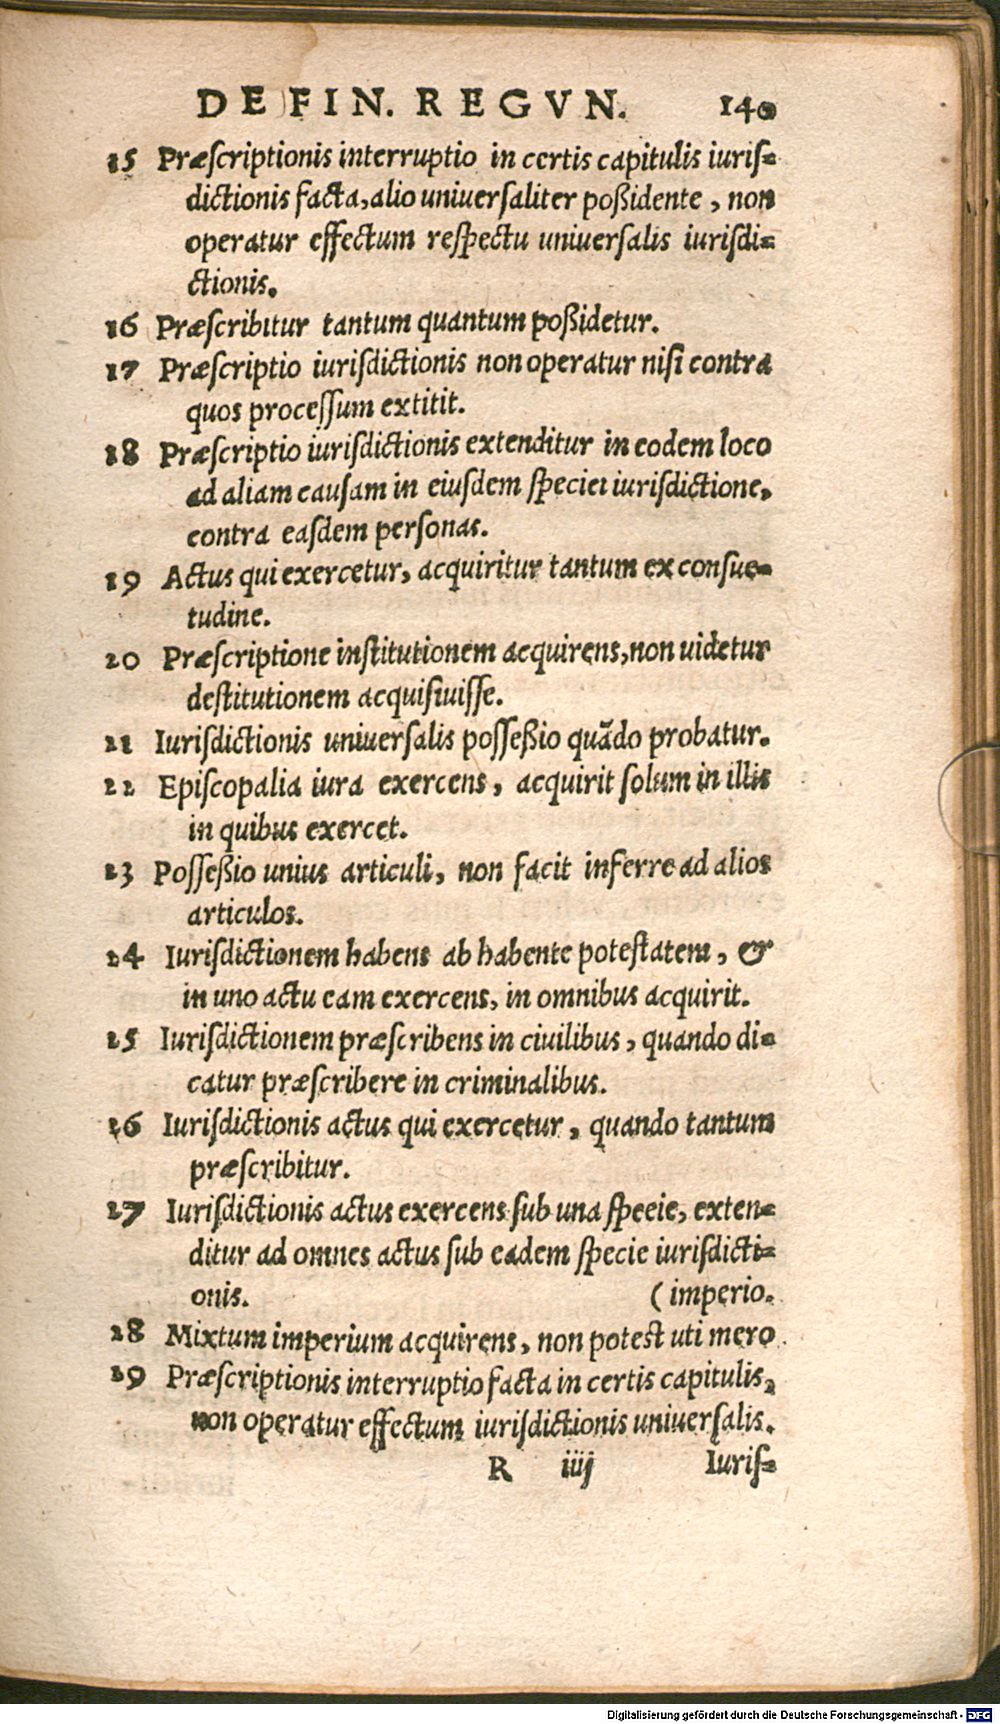 DE FIN. REGVN. 140
15 Præscriptionis interruptio in certis capitulis iuris-
dictionis facta, alio uniuersaliter poßidente, non
operatur effectum respectu uniuersalis iurisdi-
ctionis.
16 Præscribitur tantum quantum poßidetur.
17 Præscriptio iurisdictionis non operatur nisi contra
quos processum extitit.
18 Præscriptio iurisdictionis extenditur in eodem loco
ad aliam causam in eiusdem speciei iurisdictione,
contra easdem personas.
19 Actus qui exercetur, acquiritur tantum ex consue-
tudine.
20 Præscriptione institutionem acquirens, non uidetur
destitutionem acquisiuisse.
21 Iurisdictionis uniuersalis possessio quãdo probatur.
22 Episcopalia iura exercens, acquirit solum in illis
in quibus exercet.
23 Posseßio unius articuli, non facit inferre ad alios
articulos.
24 Iurisdictionem habens ab habente potestatem, &
in uno actu eam exercens, in omnibus acquirit.
25 Iurisdictionem præscribens in ciuilibus, quando di-
catur præscribere in criminalibus.
26 Iurisdictionis actus qui exercetur, quando tantum
præscribitur.
27 Iurisdictionis actus exercens sub una speeie, exten-
ditur ad omnes actus sub eadem specie iurisdicti-
onis. (imperio.
28 Mixtum imperium acquirens, non potest uti mero
29 Præscriptionis interruptio facta in certis capitulis,
non operatur effectum iurisdictionis uniuersalis.
R iiij Iuris-
Digitalisierung gefördert durch die Deutsche Forschungsgemeinschaft - DFG